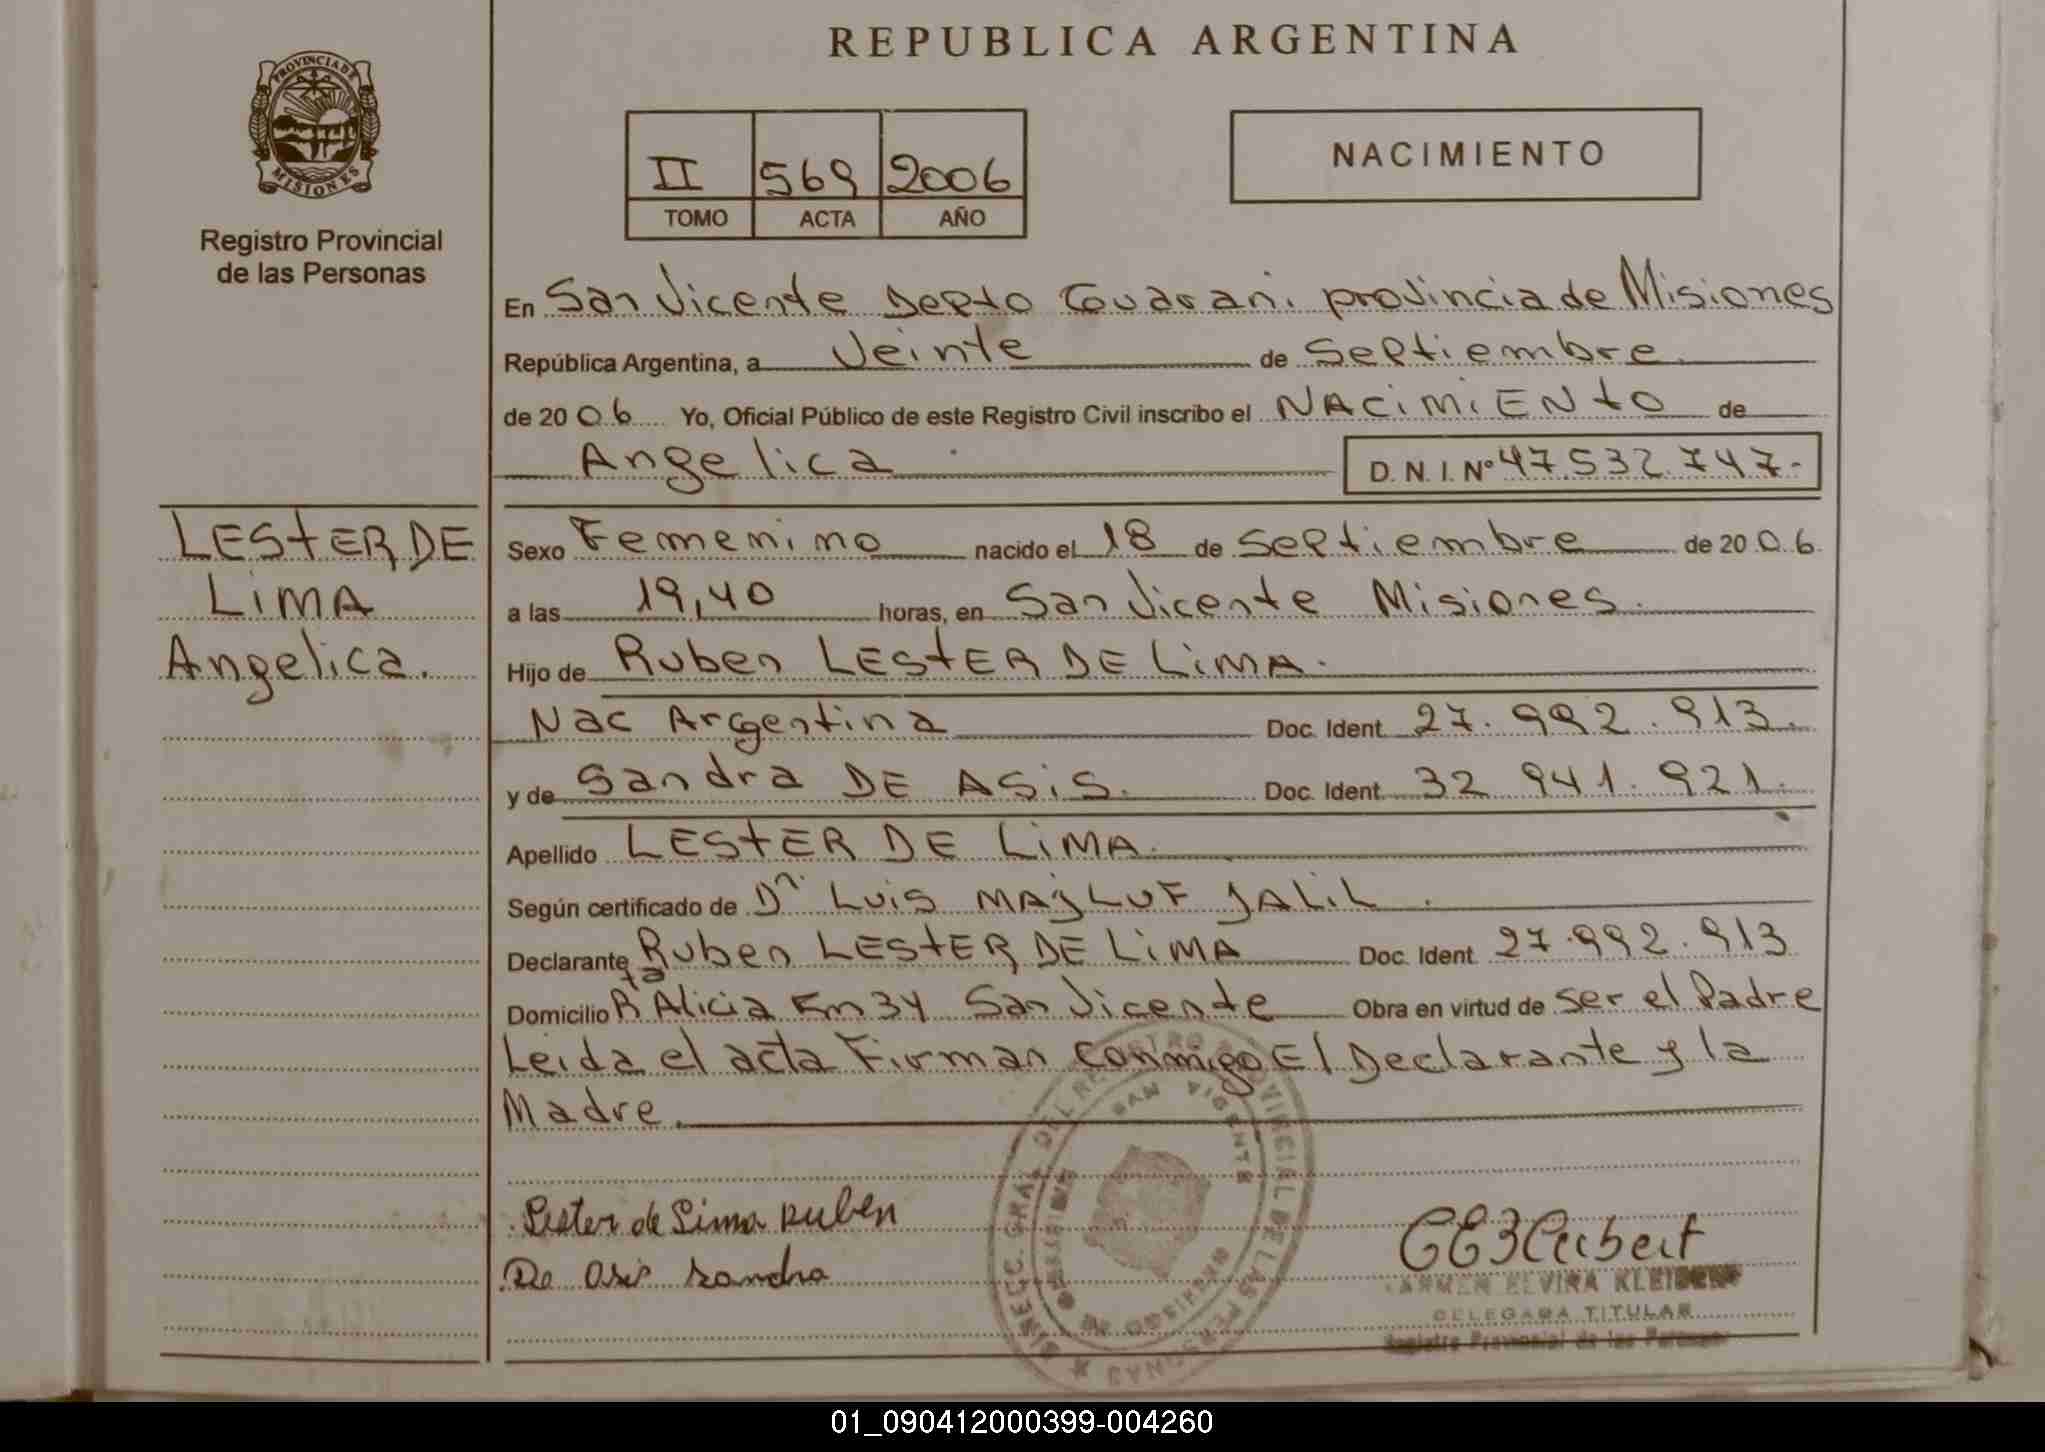 REPUBLICA ARGENTINA
PROVINCIA DE MISIONES
Registro Provincial
de las Personas
II 569 2006
TOMO ACTA AÑO
NACIMIENTO
En San Vicente Depto Guarani provincia de Misiones
República Argentina, a Veinte de Septiembre
de 2006 Yo, Oficial Público de este Registro Civil inscribo el NACIMIENTO de
Angelica D. N. I. Nº 47.532.747-
LESTER DE
LIMA
Angelica.
Sexo Femenino nacido el 18 de Septiembre de 2006
a las 19,40 horas, en San Vicente Misiones.
Hijo de Ruben LESTER DE LIMA.
Nac Argentina Doc. Ident. 27.992.913.
y de Sandra DE ASIS. Doc. Ident. 32 941.921.
Apellido LESTER DE LIMA.
Según certificado de Dr. LUIS MAJLUF JALIL.
Declarante Ruben LESTER DE LIMA Doc. Ident. 27.992.913
Domicilio Rta Alicia Km 34 San Vicente Obra en virtud de ser el Padre
Leida el acta Firman conmigo El Declarante y la
Madre.
Lester de Lima Ruben
De Asis Sandra
DEL REGISTRO PROVINCIAL DE LAS PERSONAS
SAN VICENTE
CARMEN ELVIRA
DELEGADA TITULAR
Registro Provincial de las Personas
01_090412000399-004260